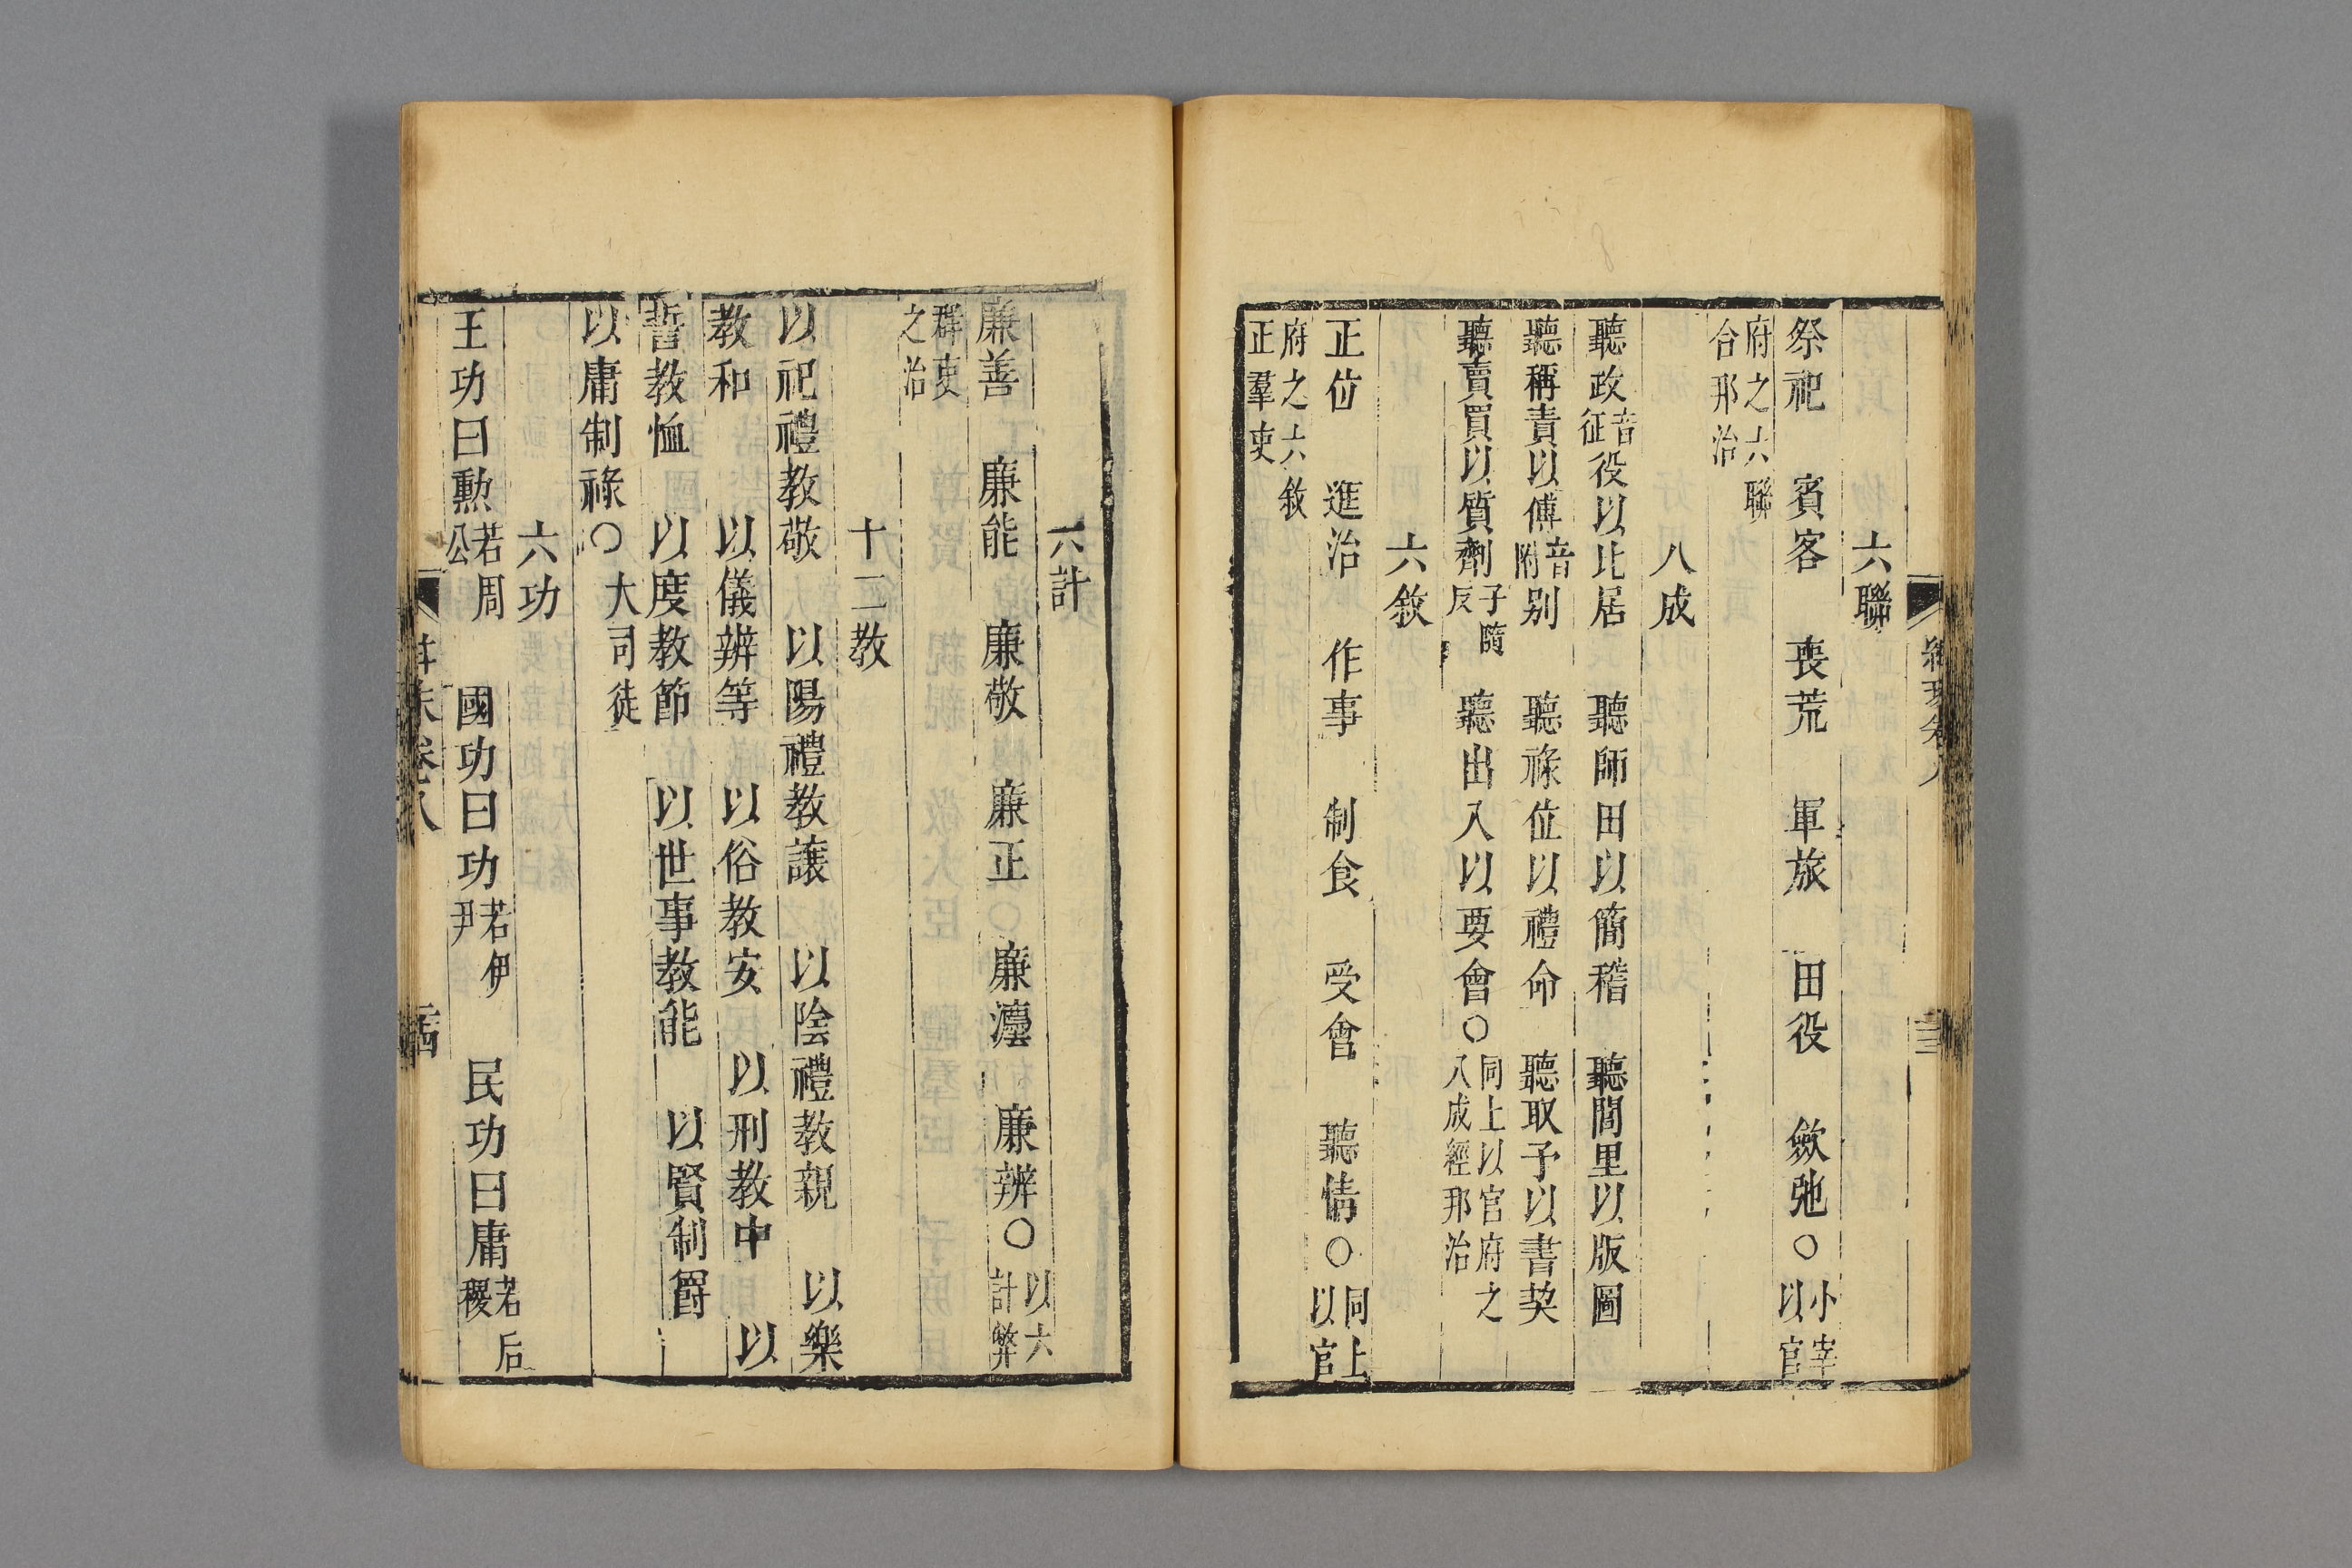 六聯
祭祀　賓客　喪荒　軍旅　田役　斂弛○小宰以官
府之六聯合邦治
八成
聽政音征役以比居　聽師田以簡稽　聽閭里以版圖
聽稱責以傅音附别　聽祿位以禮命　聽取予以書契
聽賣買以質劑子隨反　聽出入以要會○同上以官府之八成經邦治
六敘
正位　進治　作事　制食　受會　聽情○同上以官
府之六敘正羣吏
六計
廉善　廉能　廉敬　廉正　廉灋　廉辨○以六計弊
群吏之治
十二教
以祀禮教敬　以陽禮教讓　以陰禮教親　以樂
教和　以儀辨等　以俗教安　以刑教中　以
誓教恤　以度教節　以世事教能　以賢制爵
以庸制祿○大司徒
六功
王功曰勲若周公　國功曰功若伊尹　民功曰庸若后稷